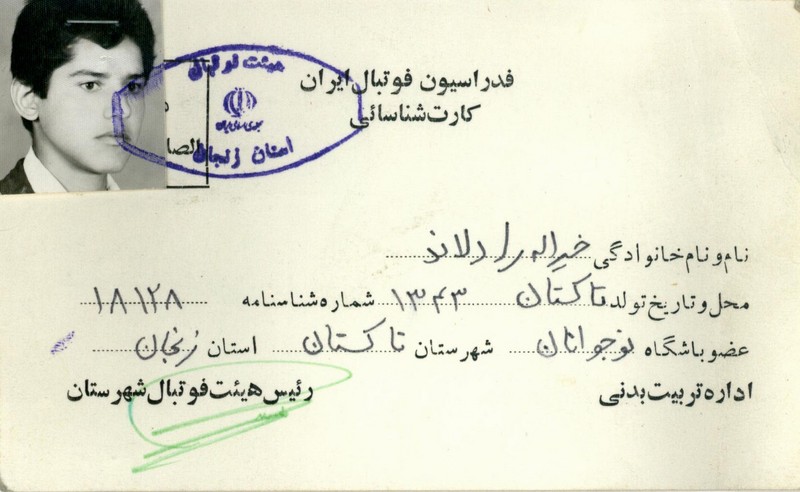 فدراسیون فوتبال ایران
کارت شناسائی
هیئت فوتبال
استان زنجان
الصا
نام و نام خانوادگی
محل و تاریخ تولد تاکستان ۱۳۴۳ شماره شناسنامه ۱۸۱۲۸
عضو باشگاه نوجوانان شهرستان تاکستان استان زنجان
اداره تربیت بدنی
رئیس هیئت فوتبال شهرستان